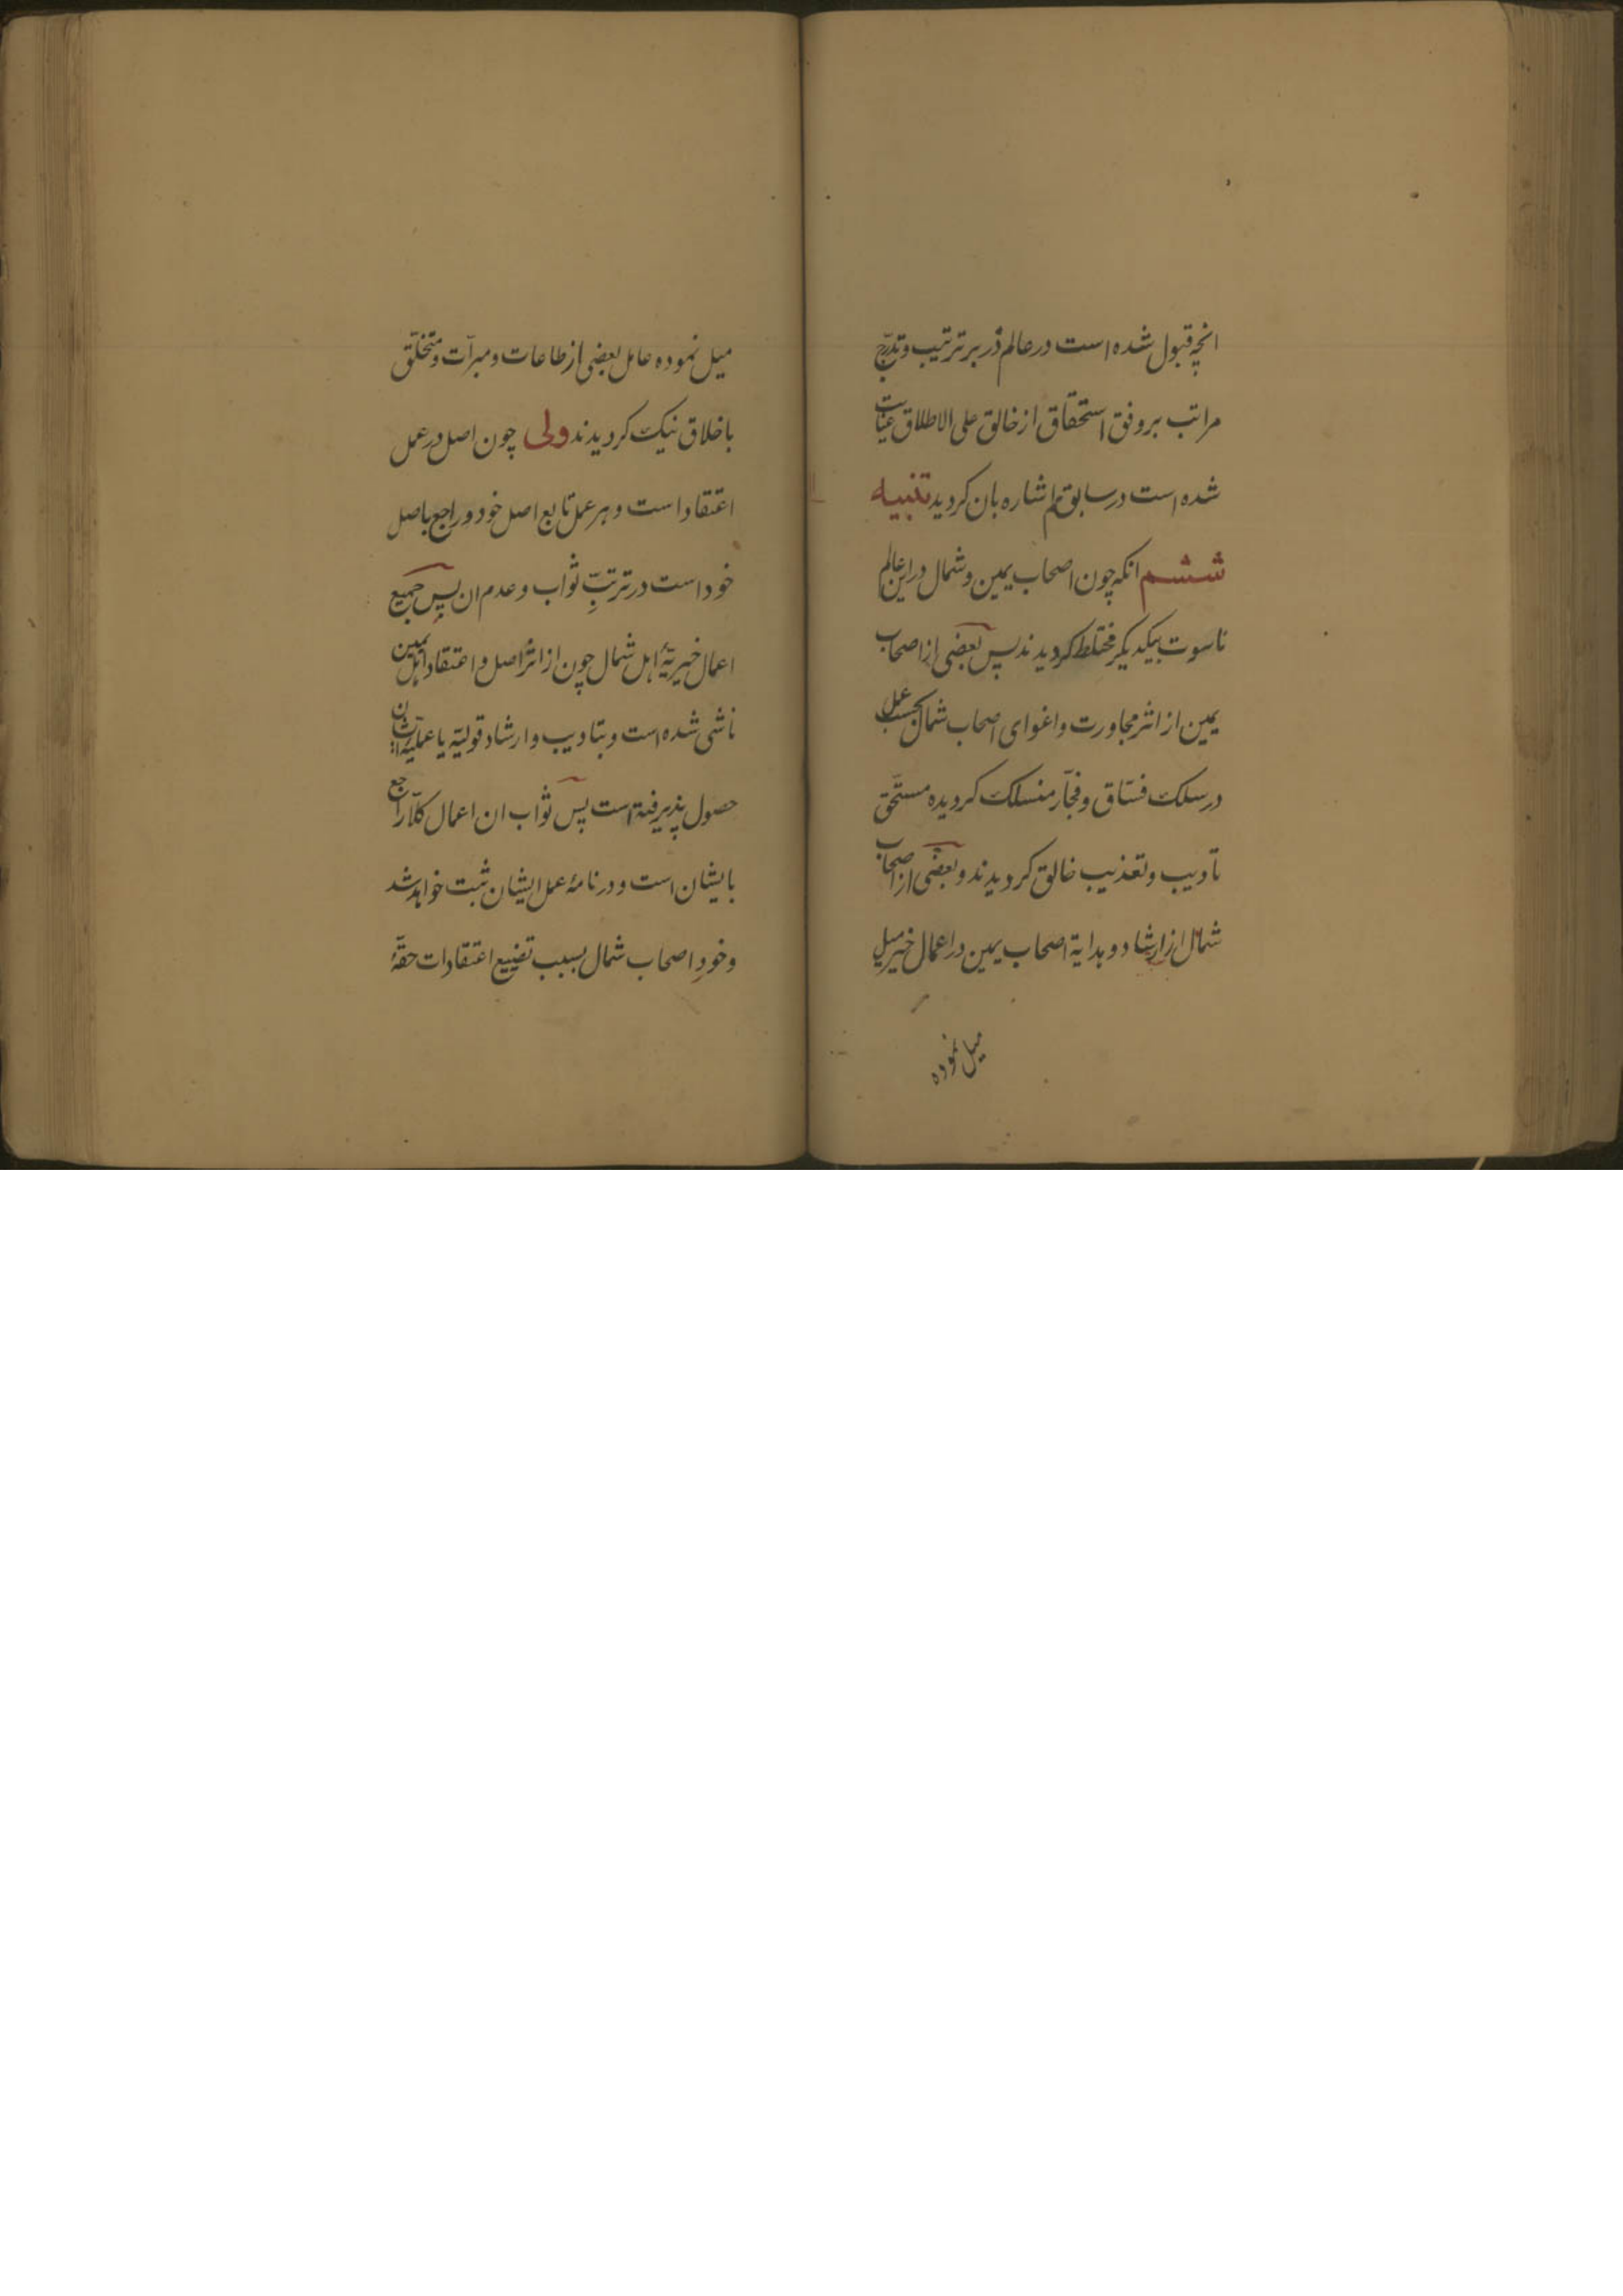 انچه قبول شده است در عالم ذر بر ترتیب و تدرّج
مراتب بر وفق استحقاق از خالق علی الاطلاق عنایت
شده است در سابق هم اشاره بان کردید تنبیه
ششم انکه چون اصحاب یمین و شمال در این عالم
ناسوت بیکدیکر مختلط کردیدند پس بعضی از اصحاب
یمین از اثر مجاورت و اغوای اصحاب شمال بحسب عمل
در سلک فسّاق و فجّار منسلک کردیده مستحق
تادیب و تعذیب خالق کردیدند و بعضی از اصحاب
شمال از ارشاد و هدایة اصحاب یمین در اعمال خیر میل
میل نموده
میل نموده عامل بعضی از طاعات و مبرّات و متخلّق
باخلاق نیک کردیدند ولی چون اصل در عمل
اعتقاد است و هر عمل تابع اصل خود و راجع باصل
خود است در ترتبّ ثواب و عدم ان پس جمیع
اعمال خیریّهٔ اهل شمال چون از اثر اصل و اعتقاد اهل یمین
ناشی شده است و بتادیب و ارشاد قولیّه یا عملیّه ایشان
حصول پذیرفته است پس ثواب ان اعمال کلّا راجع
بایشان است و در نامهٔ عمل ایشان ثبت خواهد شد
و خودِ اصحاب شمال بسبب تضییع اعتقادات حقّهٔ